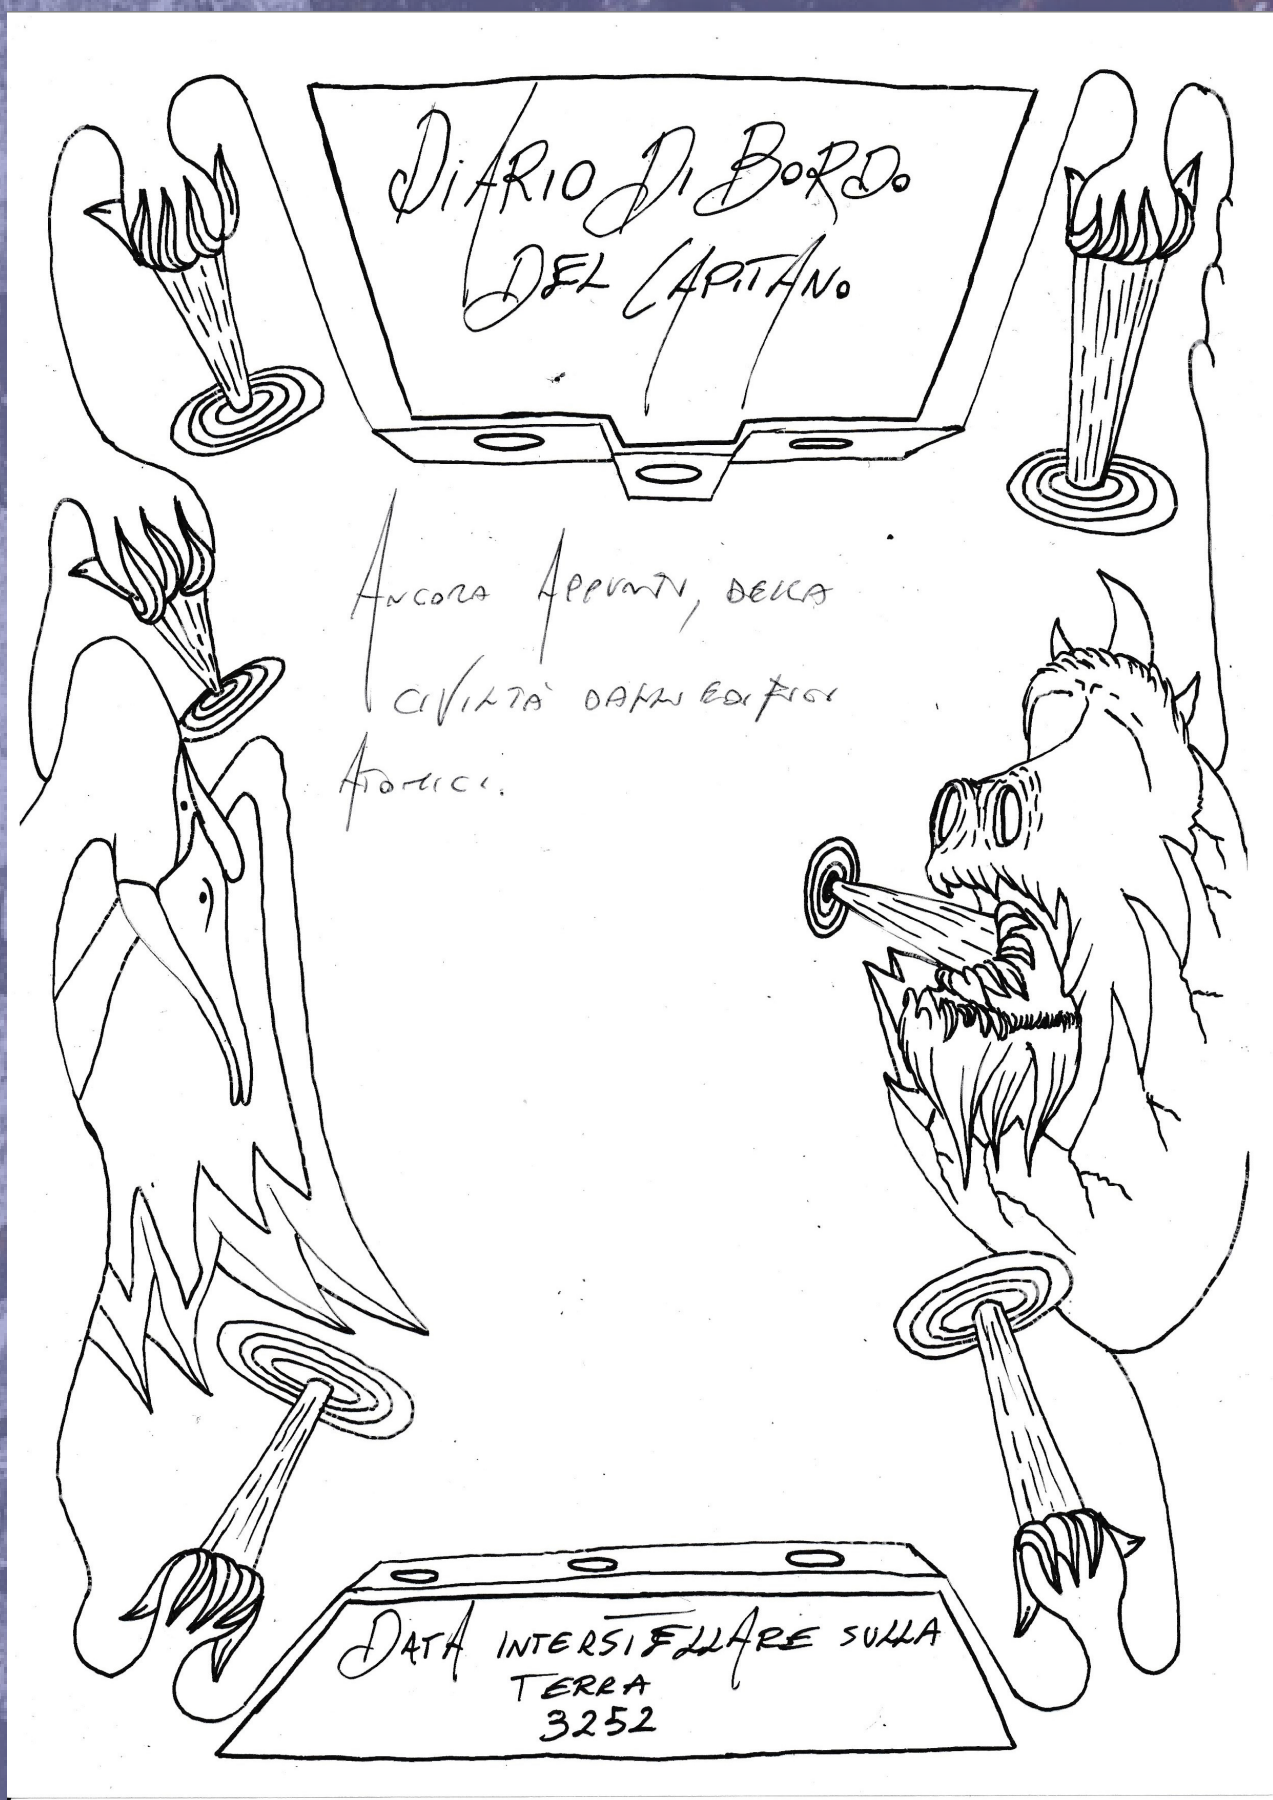 DiARIO Di BORDO
DEL CAPITANO
ANCORA APPUNTI, DELLA
CIVILTÀ DAGLI EDIFICI
ATOMICI.
DATA INTERSTELLARE SULLA
TERRA
3252